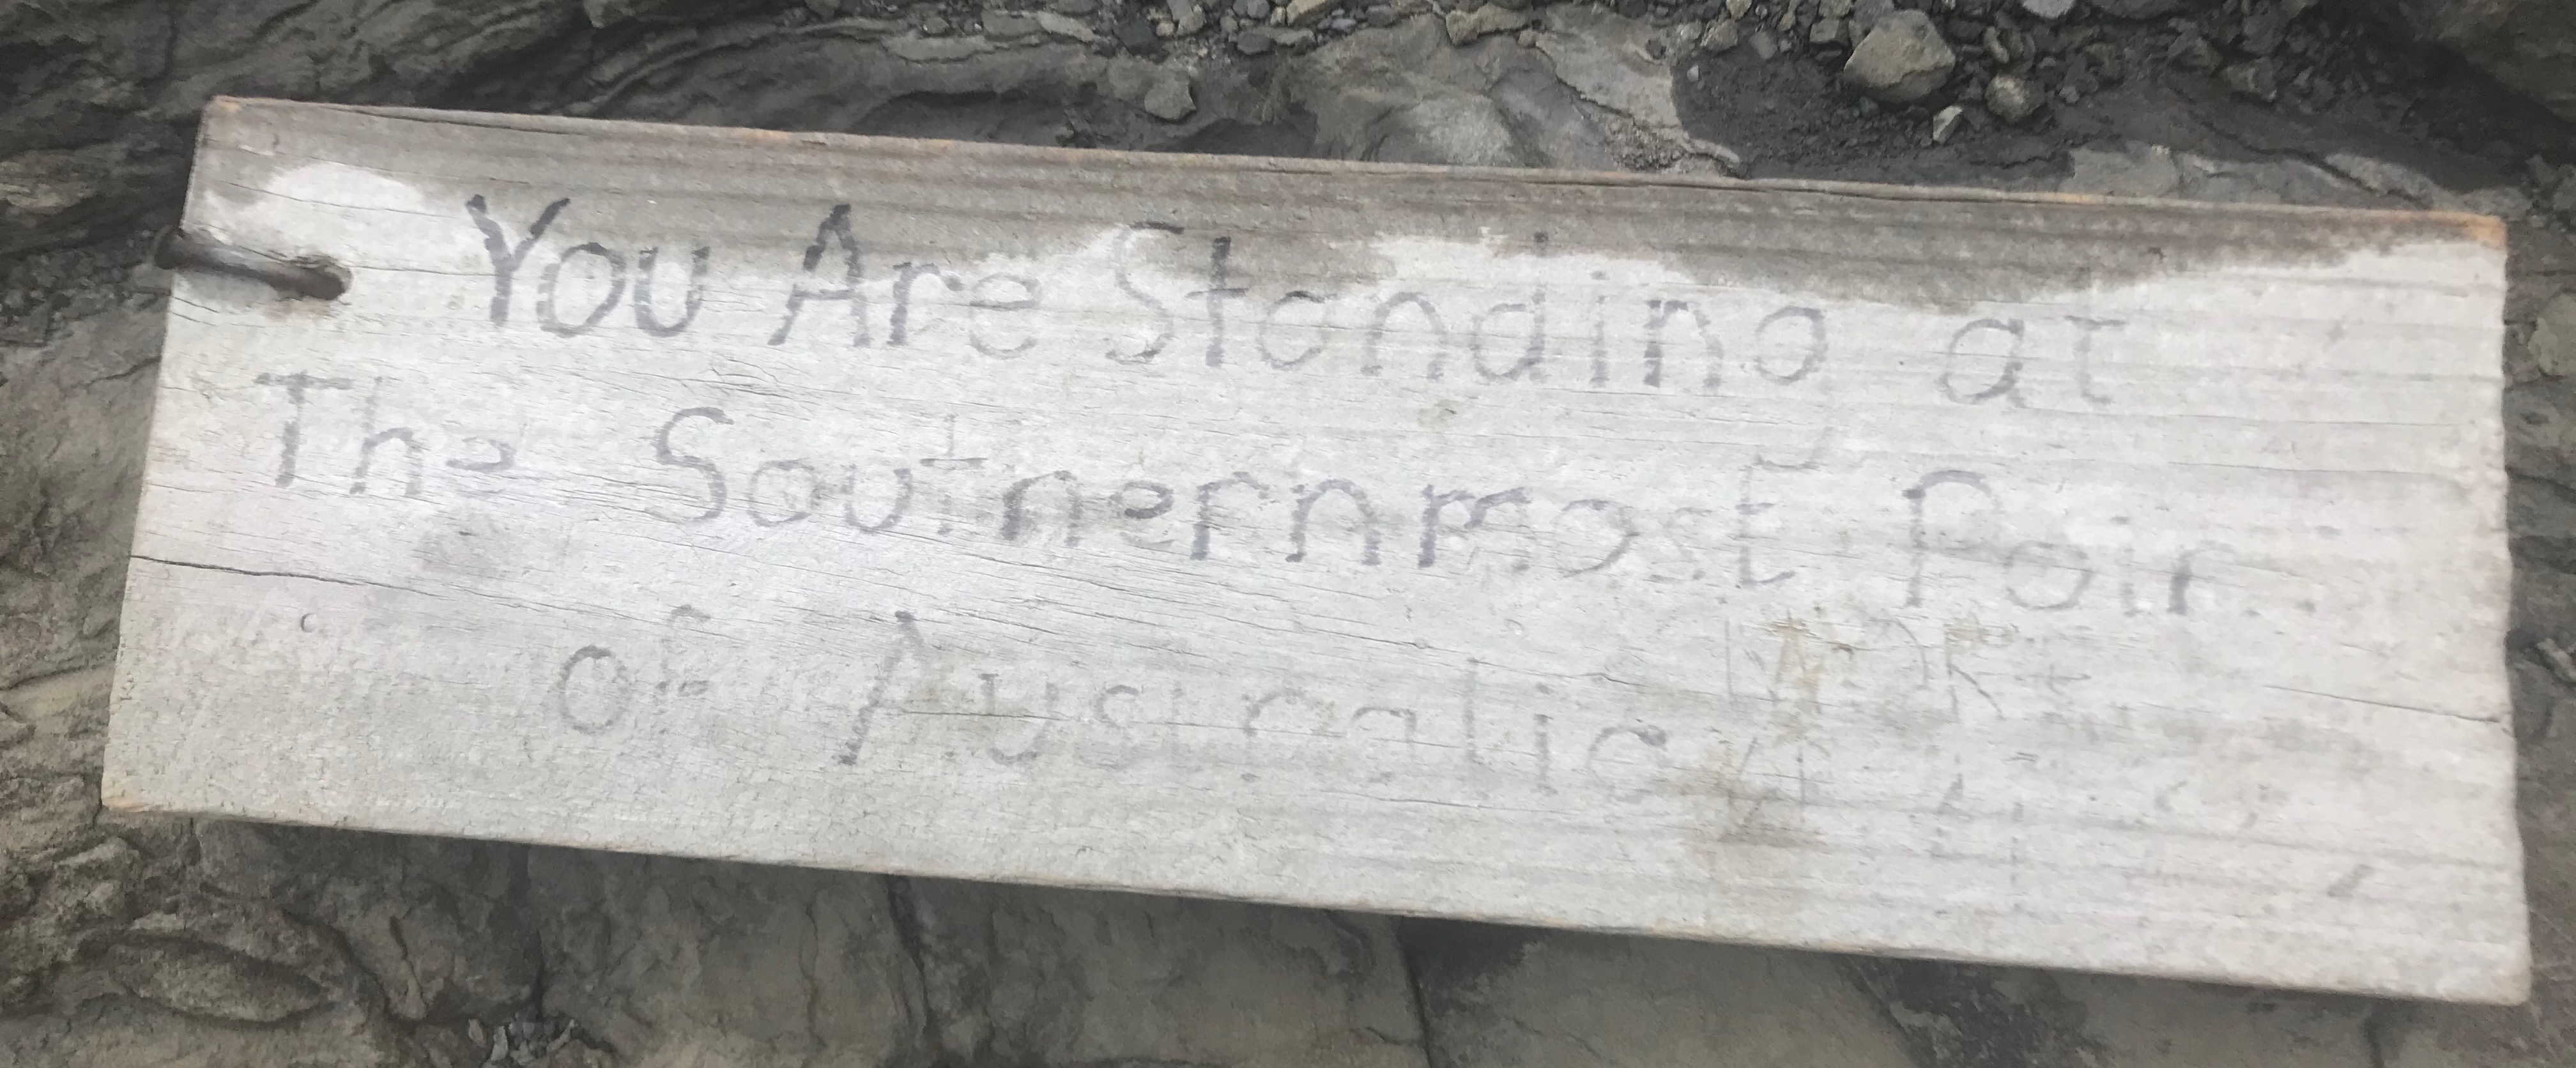 You Are Standing at
The Southernmost Point
of Australia